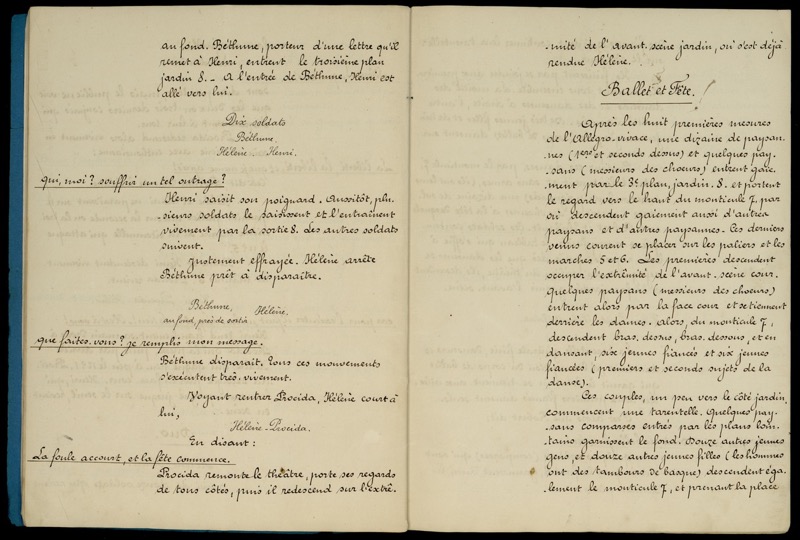 au fond. Béthune, porteur d'une lettre qu'il
remet à Henri, entrent le troisième plan
jardin 8. - A l'entrée de Béthune, Henri est
allé vers lui.
Dix soldats
Béthune,
Hélène. Henri.
qui, moi? souffrir un tel outrage?
Henri saisit son poignard. Aussitôt, plu-
sieurs soldats le saisissent et l'entraînent
vivement par la sortie 8. Les autres soldats
suivent.
Justement effrayée. Hélène arrête
Béthune prêt à disparaître.
Béthune, Hélène.
au fond, près de sortir
que faites-vous? je remplis mon message.
Béthune disparait. Tous ces mouvements
s'exécutent très-vivement.
Voyant rentrer Procida, Hélène court à
lui,
Hélène-Procida.
En disant:
La foule accourt, et la fête commence.
Procida remonte le théâtre, porte ses regards
de tous côtés, puis il redescend sur l'extré-
-mité de l'avant-scène jardin, où s'est déjà
rendue Hélène.
Ballet et Fête.
Après les huit premières mesures
de l'Allegro-vivace, une dizaine de paysan-
nes (1ers et seconds dessus) et quelques pay-
-sans (messieurs des choeurs) entrent gaie-
-ment par le 3e plan, jardin. 8. et portent
le regard vers le haut du monticule 7, par
où descendent gaiement aussi d'autres
paysans et d'autres paysannes. Ces derniers
venus courent se placer sur les paliers et les
marches 5 et 6. Les premières descendent
occuper l'extrêmité de l'avant-scène cour.
quelques paysans (messieurs des choeurs)
entrent alors par la face cour et se tiennent
derrière les dames. Alors, du monticule 7,
descendent bras-dessus, bras-dessous, et en
dansant, six jeunes fiancés et six jeunes
fiancées (premiers et seconds sujets de la
danse).
Ces couples, un peu vers le côté jardin
commencent une tarentelle. quelques pay-
-sans comparses entrés par les plans loin-
-tains garnissent le fond. Douze autres jeunes
gens, et douze autres jeunes filles (les hommes
ont des tambours de basque) descendent éga-
-lement le monticule 7, et prenant la place